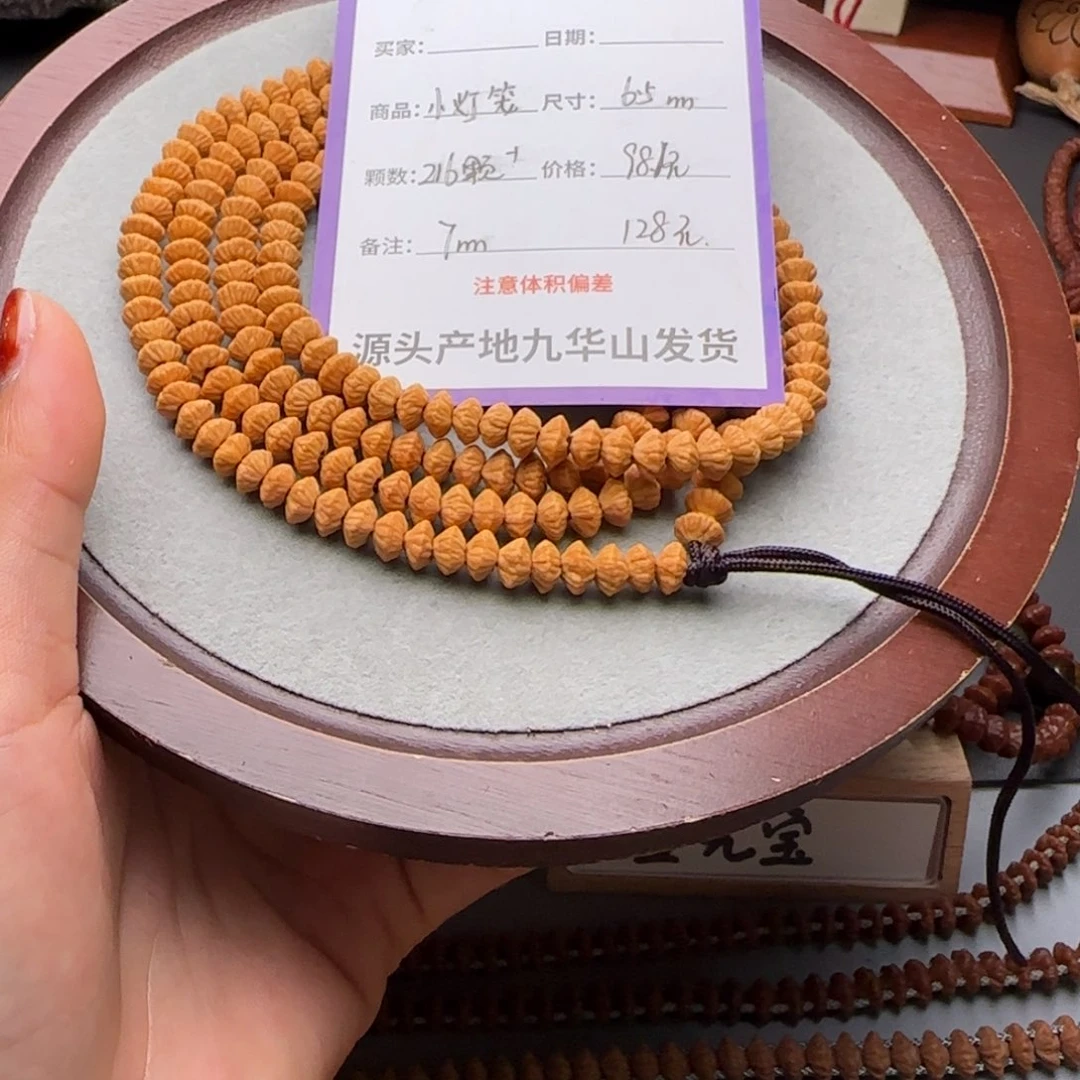 买家: 日期:
商品: 小灯笼 尺寸: 6.5 mm
颗数: 216颗+ 价格: 98元
备注: 7mm 128元.
注意体积偏差
源头产地九华山发货
元宝